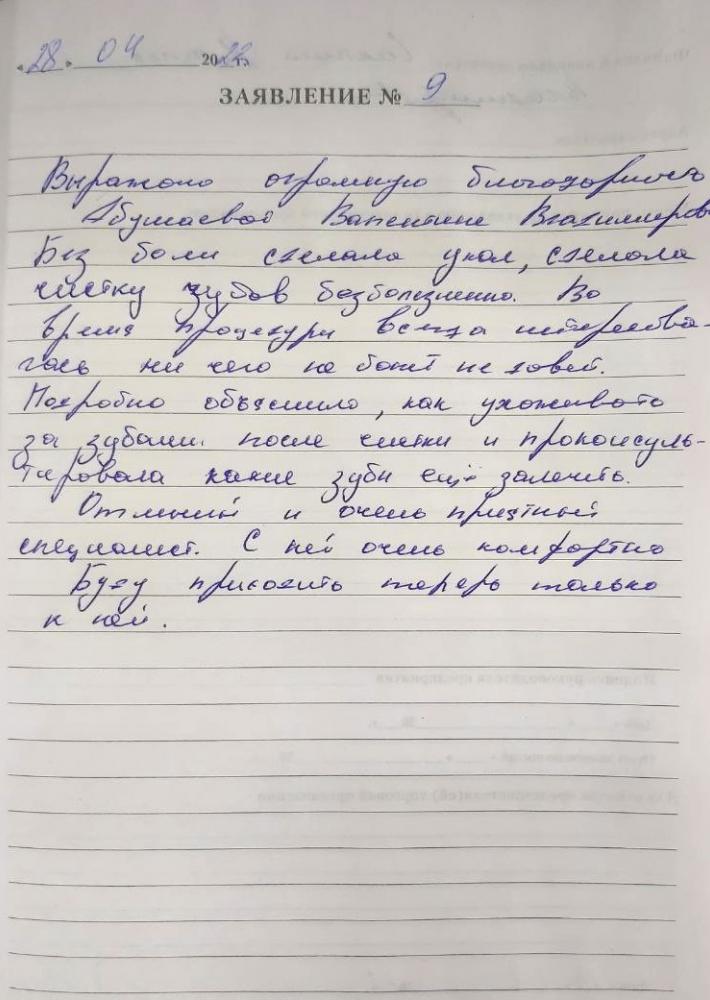 «28» 04 2022 г.
ЗАЯВЛЕНИЕ № 9
Выражаю огромную благодарность
Абушаевой Валентине Владимиров
Без боли сделала укол, сделала
чистку зубов безболезненно. Во
время процедуры всегда интересова-
лась ни чего не болит не давит.
Подробно объяснила, как ухаживать
за зубами после чистки и проконсуль-
тировала какие зубы ещё залечить.
Отличный и очень приятный
специалист. С ней очень комфортно
Буду приходить теперь только
к ней.